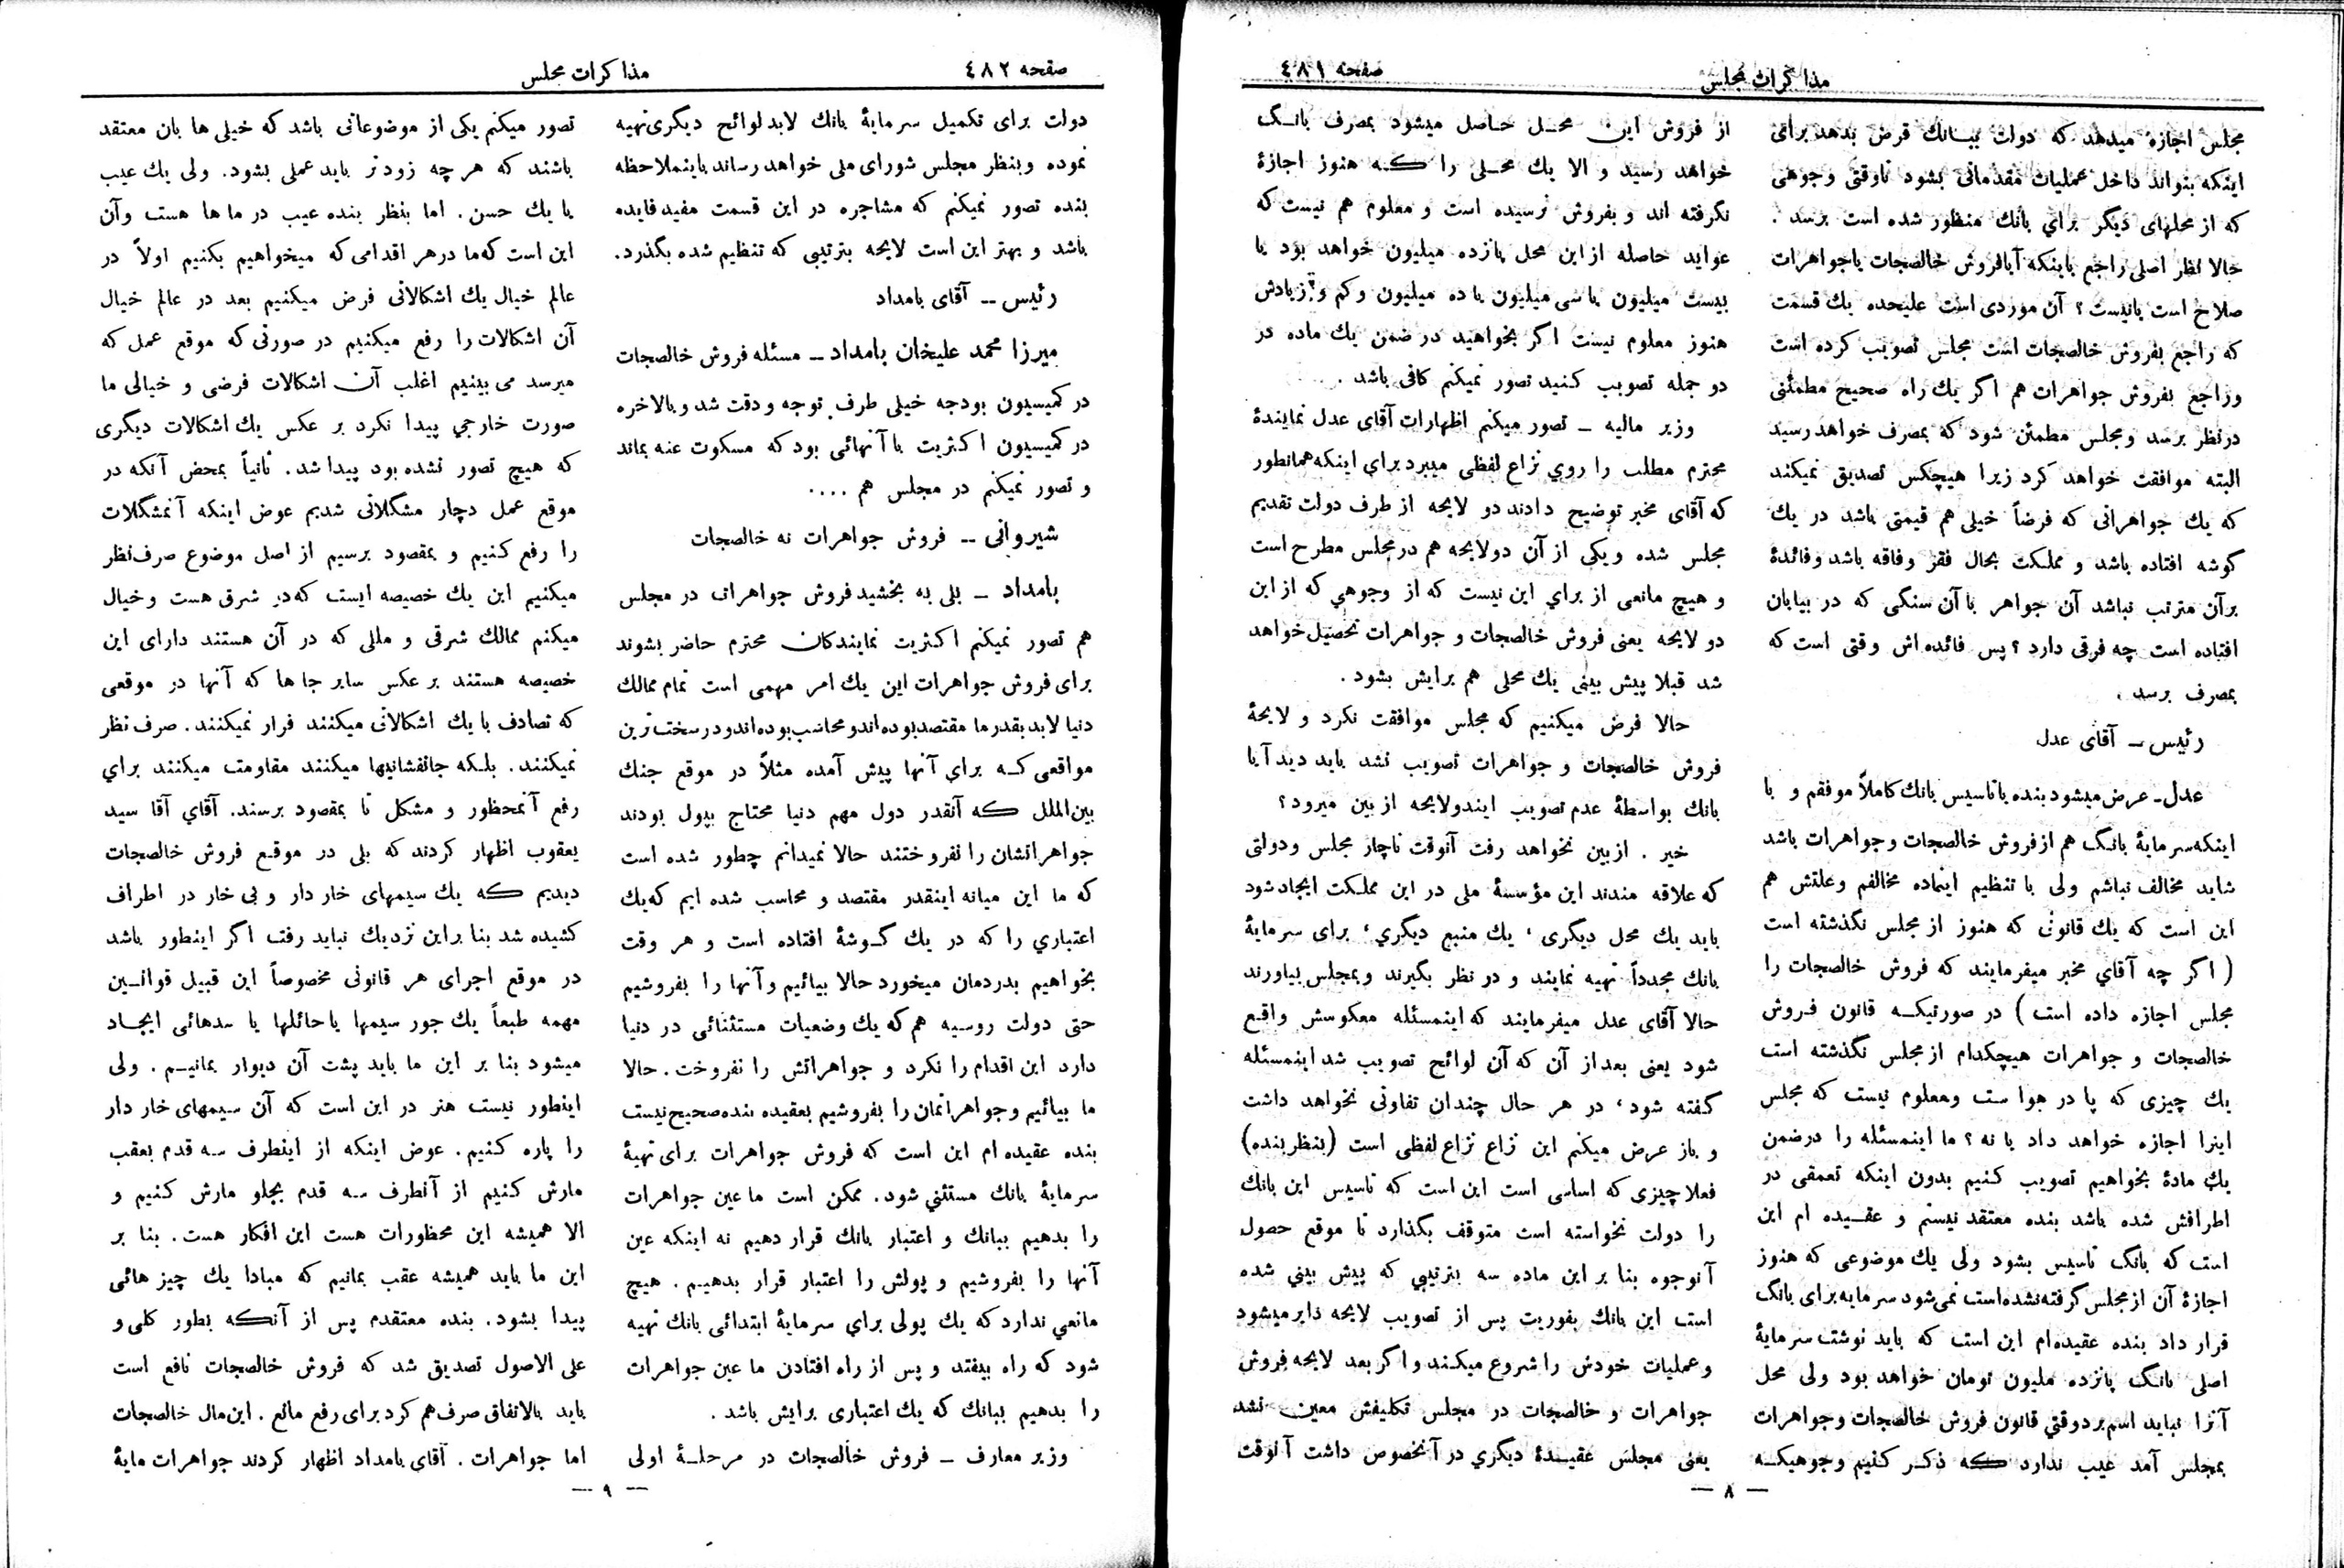 مذاکرات مجلس
صفحه ٤٨١
مجلس اجازه میدهد که دولت ببانك قرض بدهد برای
اینکه بتواند داخل عملیات مقدماتی بشود تاوقتی وجوهی
که از محلهای دیگر برای بانك منظور شده است برسد .
حالا نظر اصلی راجع باینکه آیافروش خالصجات یاجواهرات
صلاح است یانیست ؟ آن موردی است علیحده یك قسمت
که راجع بفروش خالصجات است مجلس تصویب کرده است
وراجع بفروش جواهرات هم اگر یك راه صحیح مطمئنی
درنظر برسد ومجلس مطمئن شود که بمصرف خواهد رسید
البته موافقت خواهد کرد زیرا هیچکس تصدیق نمیکند
که یك جواهراتی که فرضاً خیلی هم قیمتی باشد در یك
گوشه افتاده باشد و مملکت بحال فقر وفاقه باشد وفائدهٔ
برآن مترتب نباشد آن جواهر باآن سنگی که در بیابان
افتاده است چه فرقی دارد ؟ پس فائده اش وقتی است که
بمصرف برسد .
رئیس ــ آقای عدل
عدل ـ عرض میشود بنده باتاسیس بانك کاملاً موفقم و با
اینکه سرمایهٔ بانگ هم از فروش خالصجات وجواهرات باشد
شاید مخالف نباشم ولی با تنظیم اینماده مخالفم وعلتش هم
این است که یك قانونی که هنوز از مجلس نگذشته است
( اگر چه آقای مخبر میفرمایند که فروش خالصجات را
مجلس اجازه داده است ) در صورتیکه قانون فروش
خالصجات و جواهرات هیچکدام از مجلس نگذشته است
یك چیزی که پا در هوا ست ومعلوم نیست که مجلس
اینرا اجازه خواهد داد یا نه ؟ ما اینمسئله را درضمن
یك مادهٔ بخواهیم تصویب کنیم بدون اینکه تعمقی در
اطرافش شده باشد بنده معتقد نیستم و عقیده ام این
است که بانگ تاسیس بشود ولی یك موضوعی که هنوز
اجازهٔ آن از مجلس گرفته نشده است نمی شود سرمایه برای بانگ
قرار داد بنده عقیده‌ام این است که باید نوشت سرمایهٔ
اصلی بانگ پانزده ملیون تومان خواهد بود ولی محل
آنرا نباید اسم برد وقتی قانون فروش خالصجات وجواهرات
بمجلس آمد عیب ندارد که ذکر کنیم وجوهیکه
از فروش این محل حاصل میشود بمصرف بانگ
خواهد رسید و الا یك محلی را که هنوز اجازهٔ
نگرفته اند و بفروش نرسیده است و معلوم هم نیست که
عواید حاصله از این محل پانزده میلیون خواهد بود یا
بیست میلیون یا سی میلیون یا ده میلیون وکم و زیادش
هنوز معلوم نیست اگر بخواهید در ضمن یك ماده در
دو جمله تصویب کنید تصور نمیکنم کافی باشد .
وزیر مالیه ــ تصور میکنم اظهارات آقای عدل نمایندهٔ
محترم مطلب را روي نزاع لفظی میبرد برای اینکه همانطور
که آقای مخبر توضیح دادند دو لایحه از طرف دولت تقدیم
مجلس شده ویکی از آن دولایحه هم درمجلس مطرح است
و هیچ مانعی از براي این نیست که از وجوهي که از این
دو لایحه یعنی فروش خالصجات و جواهرات تحصیل خواهد
شد قبلا پیش بینی یك محلی هم برایش بشود .
حالا فرض میکنیم که مجلس موافقت نکرد و لایحهٔ
فروش خالصجات و جواهرات تصویب نشد باید دید آیا
بانك بواسطهٔ عدم تصویب ایندولایحه از بین میرود ؟
خیر . از بین نخواهد رفت آنوقت ناچار مجلس ودولتی
که علاقه مندند این مؤسسهٔ ملی در این مملکت ایجاد شود
باید یك محل دیگری ، یك منبع دیگري ، برای سرمایهٔ
بانك مجدداً تهیه نمایند و در نظر بگیرند وبمجلس بیاورند
حالا آقای عدل میفرمایند که اینمسئله معکوسش واقع
شود یعنی بعد از آن که آن لوائح تصویب شد اینمسئله
گفته شود ، در هر حال چندان تفاوتی نخواهد داشت
و باز عرض میکنم این نزاع نزاع لفظی است (بنظر بنده)
فعلا چیزی که اساسی است این است که تاسیس این بانك
را دولت نخواسته است متوقف بگذارد تا موقع حصول
آنوجوه بنا بر این ماده سه بترتیبي که پیش بیني شده
است این بانك بفوریت پس از تصویب لایحه دایر میشود
وعملیات خودش را شروع میکند واگر بعد لایحه فروش
جواهرات و خالصجات در مجلس تکلیفش معین نشد
یعنی مجلس عقیدهٔ دیگري در آنخصوص داشت آنوقت
— ٨ —
صفحه ٤٨٢
مذاکرات مجلس
دولت برای تکمیل سرمایهٔ بانك لابد لوائح دیگری تهیه
نموده وبنظر مجلس شورای ملی خواهد رساند باینملاحظه
بنده تصور نمیکنم که مشاجره در این قسمت مفید فایده
باشد و بهتر این است لایحه بترتیبی که تنظیم شده بگذرد.
رئیس ــ آقای بامداد
میرزا محمد علیخان بامداد ــ مسئله فروش خالصجات
در کمیسیون بودجه خیلی طرف توجه ودقت شد وبالاخره
در کمیسیون اکثریت باآنهائی بود که مسکوت عنه بماند
و تصور نمیکنم در مجلس هم ....
شیروانی ــ فروش جواهرات نه خالصجات
بامداد ــ بلی به بخشید فروش جواهرات در مجلس
هم تصور نمیکنم اکثریت نمایندکان محترم حاضر بشوند
برای فروش جواهرات این یك امر مهمی است تمام ممالك
دنیا لابد بقدر ما مقتصد بوده اند و محاسب بوده اند و در سخت ترین
مواقعی که برای آنها پیش آمده مثلاً در موقع جنك
بین الملل که آنقدر دول مهم دنیا محتاج بپول بودند
جواهراتشان را نفروختند حالا نمیدانم چطور شده است
که ما این میانه اینقدر مقتصد و محاسب شده ایم که یك
اعتباري را که در یك گوشهٔ افتاده است و هر وقت
بخواهیم بدردمان میخورد حالا بیائیم وآنها را بفروشیم
حتی دولت روسیه هم که یك وضعیات مستثنائی در دنیا
دارد این اقدام را نکرد و جواهراتش را نفروخت . حالا
ما بیائیم وجواهراتمان را بفروشیم بعقیده بنده صحیح نیست
بنده عقیده ام این است که فروش جواهرات برای تهیهٔ
سرمایهٔ بانك مستثني شود. ممکن است ما عین جواهرات
را بدهیم ببانك و اعتبار بانك قرار دهیم نه اینکه عین
آنها را بفروشیم و پولش را اعتبار قرار بدهیم . هیچ
مانعي ندارد که یك پولی براي سرمایهٔ ابتدائی بانك تهیه
شود که راه بیفتد و پس از راه افتادن ما عین جواهرات
را بدهیم ببانك که یك اعتباری برایش باشد .
وزیر معارف ــ فروش خالصجات در مرحلهٔ اولی
تصور میکنم یکی از موضوعاتی باشد که خیلی ها بان معتقد
باشند که هر چه زودتر باید عملی بشود. ولی یك عیب
یا یك حسن . اما بنظر بنده عیب در ما ها هست وآن
این است که ما در هر اقدامی که میخواهیم بکنیم اولاً در
عالم خیال یك اشکالاتی فرض میکنیم بعد در عالم خیال
آن اشکالات را رفع میکنیم در صورتی که موقع عمل که
میرسد می بینیم اغلب آن اشکالات فرضی و خیالی ما
صورت خارجي پیدا نکرد بر عکس یك اشکالات دیگری
که هیچ تصور نشده بود پیدا شد. ثانیاً بمحض آنکه در
موقع عمل دچار مشگلاتی شدیم عوض اینکه آنمشگلات
را رفع کنیم و بمقصود برسیم از اصل موضوع صرف نظر
میکنیم این یك خصیصه ایست که در شرق هست وخیال
میکنم ممالك شرقی و مللی که در آن هستند دارای این
خصیصه هستند بر عکس سایر جا ها که آنها در موقعی
که تصادف با یك اشکالاتی میکنند فرار نمیکنند. صرف نظر
نمیکنند. بلکه جانفشانیها میکنند مقاومت میکنند براي
رفع آنمحظور و مشکل تا بمقصود برسند. آقاي آقا سید
یعقوب اظهار کردند که بلی در موقع فروش خالصجات
دیدیم که یك سیمهای خار دار و بی خار در اطراف
کشیده شد بنا براین نزدیك نباید رفت اگر اینطور باشد
در موقع اجرای هر قانونی مخصوصاً این قبیل قوانین
مهمه طبعاً یك جور سیمها یا حائلها یا سدهائی ایجاد
میشود بنا بر این ما باید پشت آن دیوار بمانیم . ولی
اینطور نیست هنر در این است که آن سیمهای خار دار
را پاره کنیم. عوض اینکه از اینطرف سه قدم بعقب
مارش کنیم از آنطرف سه قدم بجلو مارش کنیم و
الا همیشه این محظورات هست این افکار هست. بنا بر
این ما باید همیشه عقب بمانیم که مبادا یك چیز هائی
پیدا بشود. بنده معتقدم پس از آنکه بطور کلی و
علی الاصول تصدیق شد که فروش خالصجات نافع است
باید بالاتفاق صرف هم کرد برای رفع مانع . این مال خالصجات
اما جواهرات . آقای بامداد اظهار کردند جواهرات مایهٔ
— ٩ —